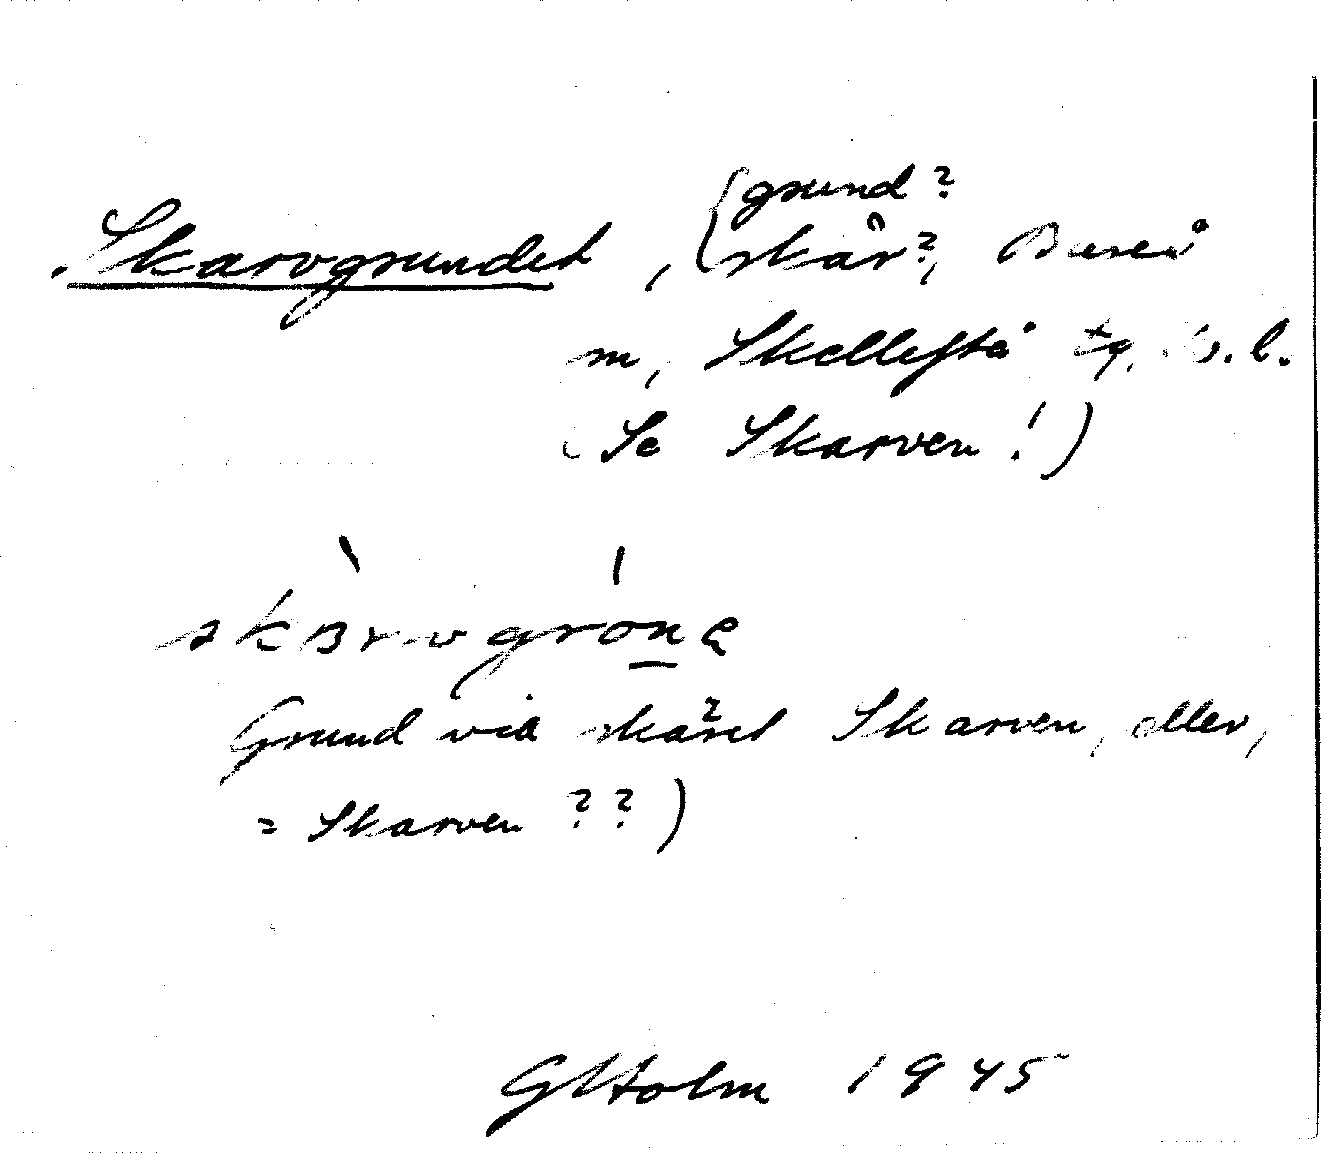 Skarvgrundet, {grund?
skär?, Bureå
m, Skellefteå tg. V.b.
(Se Skarven!)
skàrvgrón̲ę
Grund vid skäret Skarven, eller,
= Skarven ??)
GHolm 1945